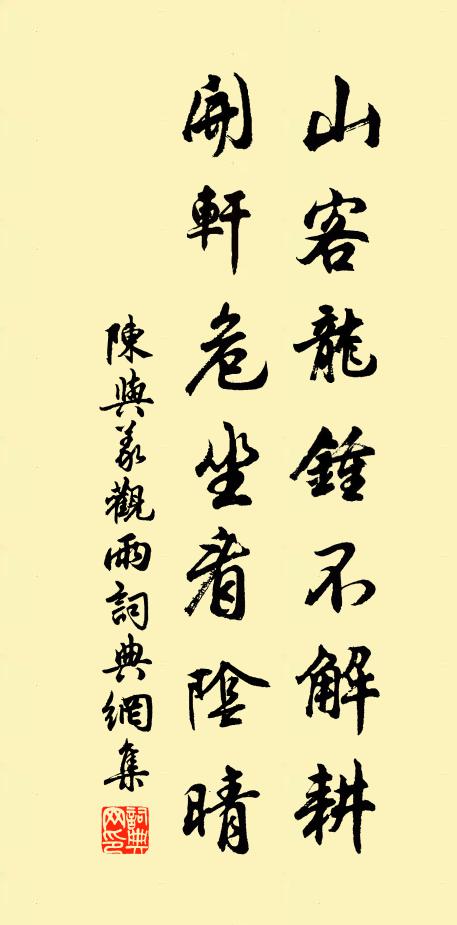 山客龍鍾不解耕
開軒危坐看陰晴
陳與義觀雨詞典網集
詞典网印